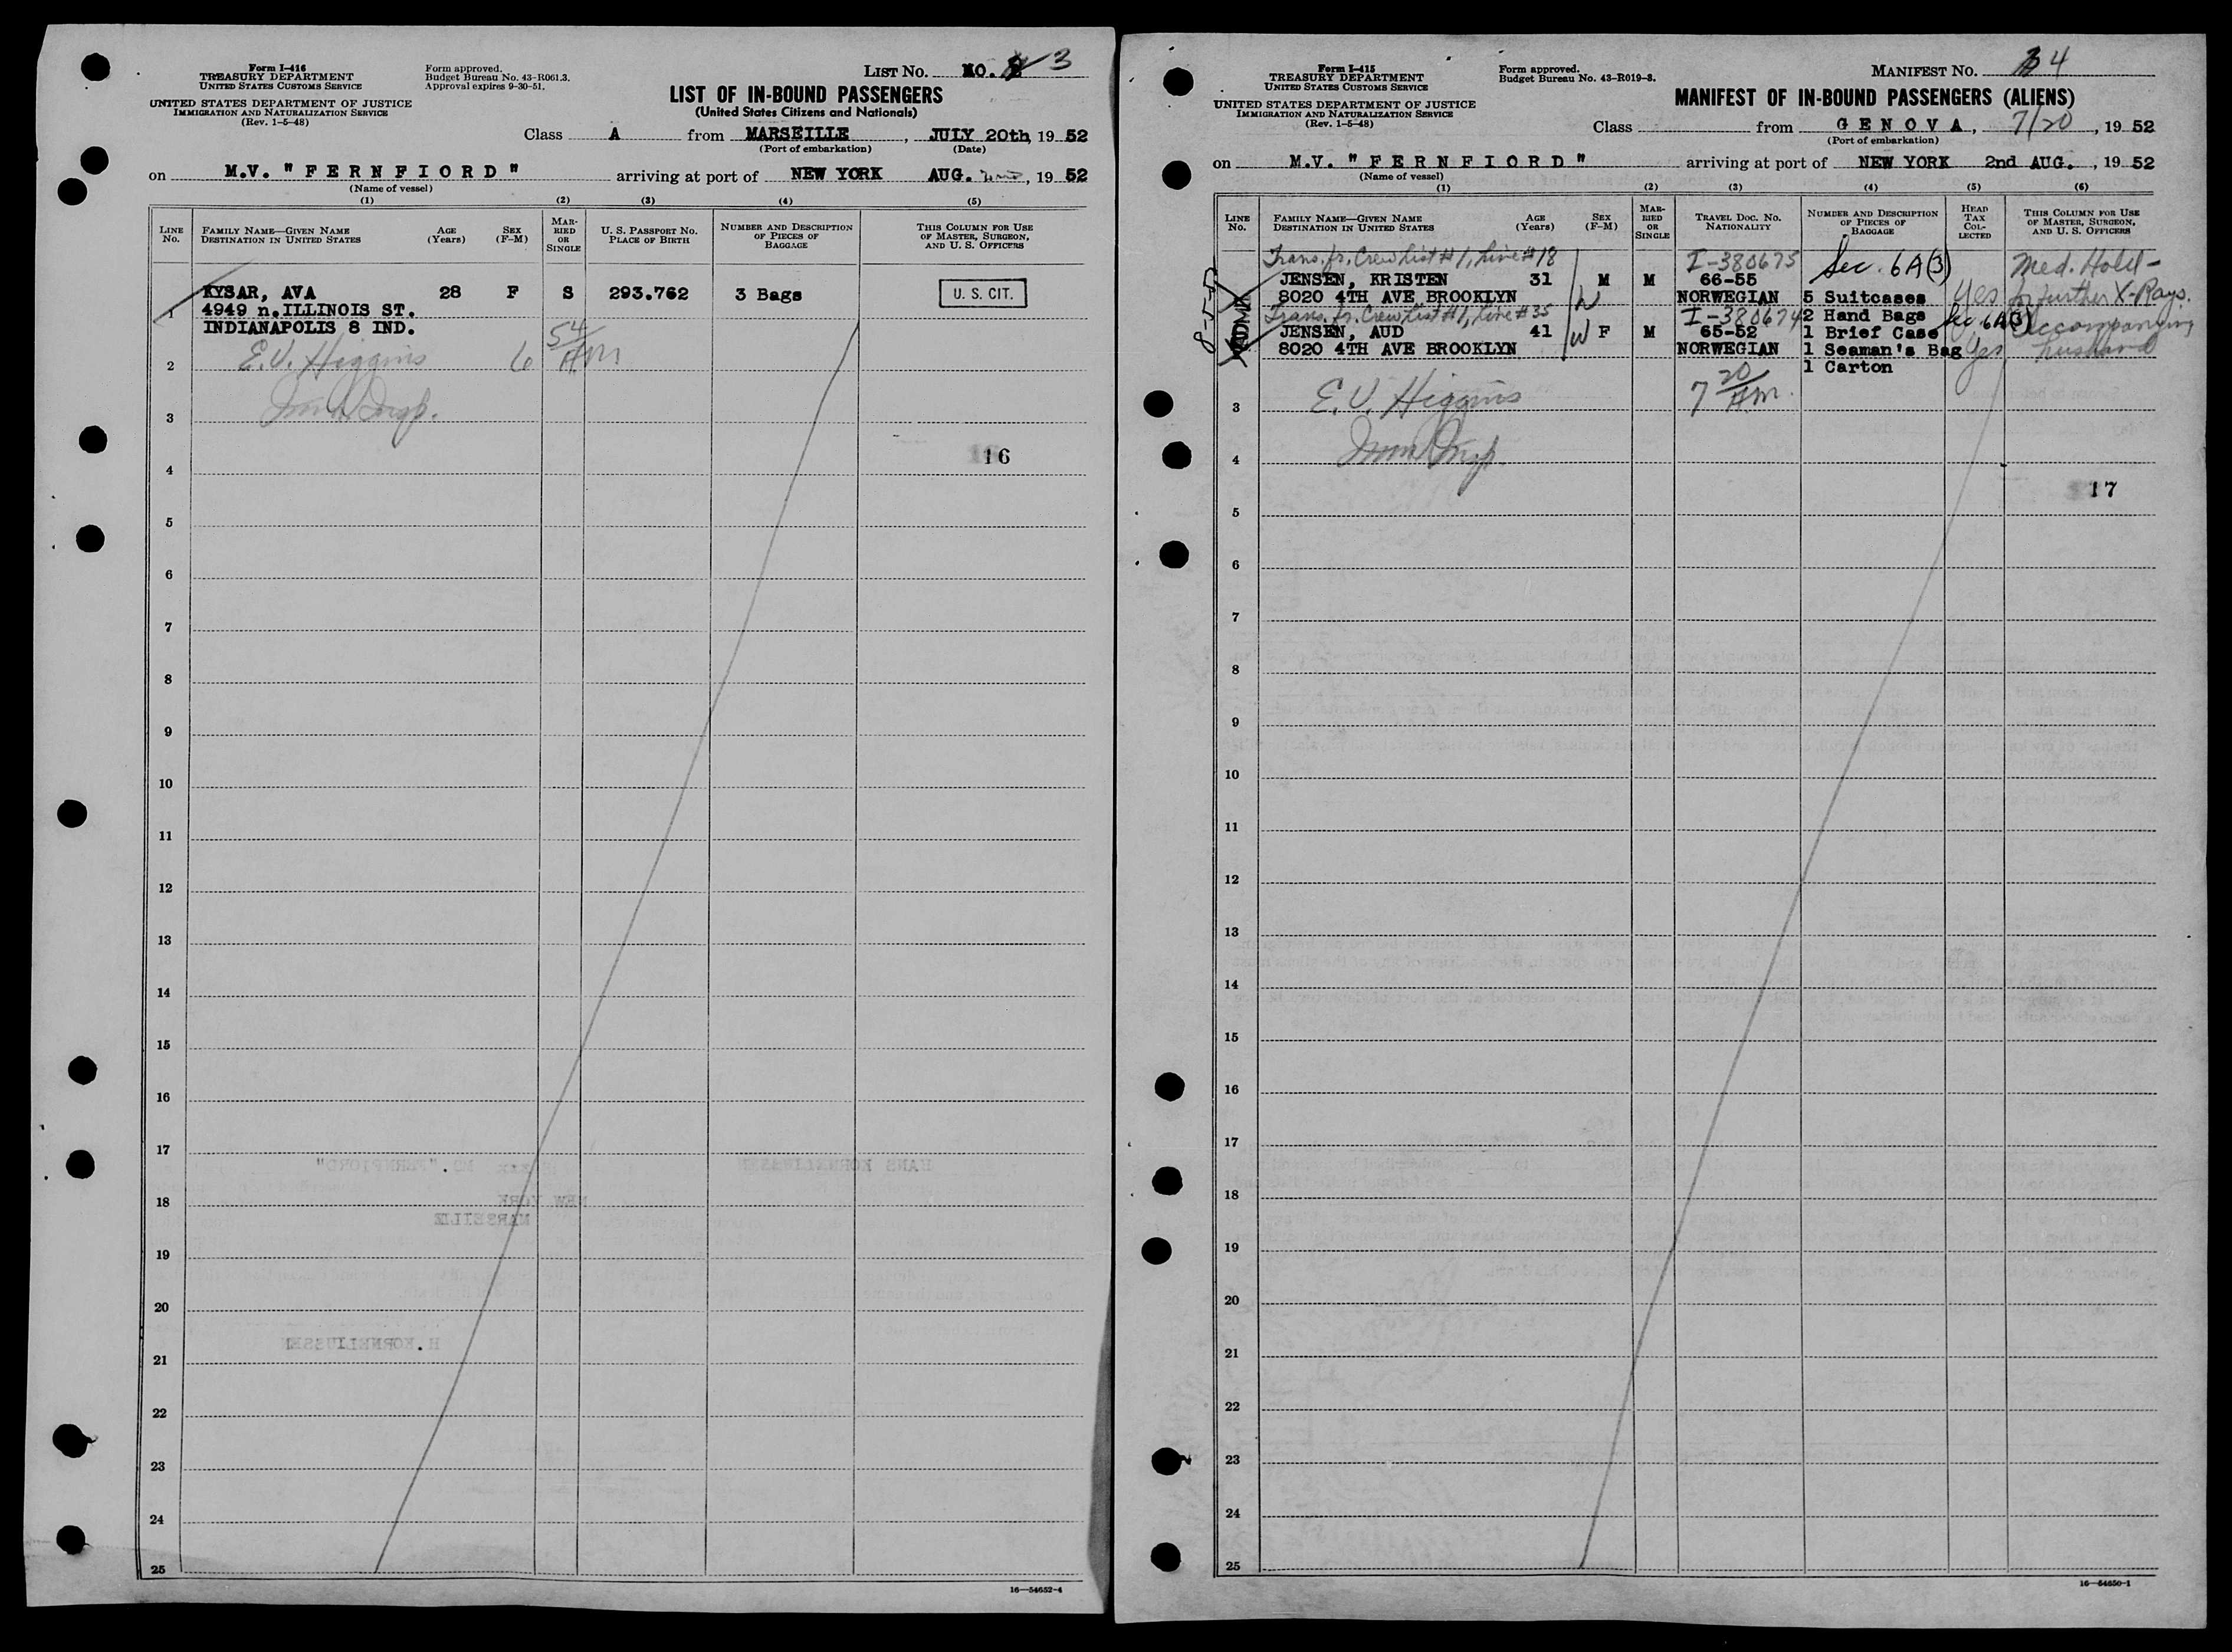 Form I-416
TREASURY DEPARTMENT
UNITED STATES CUSTOMS SERVICE
UNITED STATES DEPARTMENT OF JUSTICE
IMMIGRATION AND NATURALIZATION SERVICE
(Rev. 1-5-48)
Form approved.
Budget Bureau No. 43-R061.3.
Approval expires 9-30-51.
LIST No. NO. 3
LIST OF IN-BOUND PASSENGERS
(United States Citizens and Nationals)
Class A from MARSEILLE, JULY 20th, 19 52
(Port of embarkation) (Date)
on M.V. "FERNFIORD" arriving at port of NEW YORK AUG. 2nd, 19 52
(Name of vessel)
(1) (2) (3) (4) (5)
LINE No.
FAMILY NAME—GIVEN NAME
DESTINATION IN UNITED STATES
AGE (Years)
SEX (F-M)
MARRIED OR SINGLE
U. S. PASSPORT NO.
PLACE OF BIRTH
NUMBER AND DESCRIPTION OF PIECES OF BAGGAGE
THIS COLUMN FOR USE OF MASTER, SURGEON, AND U. S. OFFICERS
1 KYSAR, AVA 28 F S 293.762 3 Bags U. S. CIT.
4949 n.ILLINOIS ST.
INDIANAPOLIS 8 IND.
2 E.V. Higgins 6 54 AM
3 Imm. Insp.
4 16
5
6
7
8
9
10
11
12
13
14
15
16
17 HANS KORNELIUSSEN M.V. "FERNFIORD"
18 NEW YORK
MARSEILLE
19
20
H. KORNELIUSSEN
21
22
23
24
25
16—54652-4
Form I-415
TREASURY DEPARTMENT
UNITED STATES CUSTOMS SERVICE
UNITED STATES DEPARTMENT OF JUSTICE
IMMIGRATION AND NATURALIZATION SERVICE
(Rev. 1-5-48)
Form approved.
Budget Bureau No. 43-R019-8.
MANIFEST No. 4
MANIFEST OF IN-BOUND PASSENGERS (ALIENS)
Class from GENOVA, 7/20, 19 52
(Port of embarkation)
on M.V. "FERNFIORD" arriving at port of NEW YORK 2nd AUG., 19 52
(Name of vessel)
(1) (2) (3) (4) (5) (6)
LINE No.
FAMILY NAME—GIVEN NAME
DESTINATION IN UNITED STATES
AGE (Years)
SEX (F-M)
MARRIED OR SINGLE
TRAVEL DOC. NO.
NATIONALITY
NUMBER AND DESCRIPTION OF PIECES OF BAGGAGE
HEAD TAX COLLECTED
THIS COLUMN FOR USE OF MASTER, SURGEON, AND U. S. OFFICERS
Trans. fr. Crew list #1, line #18 I-380675 Sec. 6A(3) Med. Hold-
JENSEN, KRISTEN 31 M M 66-55
8020 4TH AVE BROOKLYN W NORWEGIAN 5 Suitcases Yes for further X-Rays.
Trans. fr. Crew list #1, line #35 I-380674 2 Hand Bags Sec. 6A(3) Accompanying
JENSEN, AUD 41 W F M 65-52 1 Brief Case
8020 4TH AVE BROOKLYN NORWEGIAN 1 Seaman's Bag Yes husband
1 Carton
8-5-52
ADM
3 E.V. Higgins 7 20 AM.
4 Imm Insp
17
5
6
7
8
9
10
11
12
13
14
15
16
17
18
19
20
21
22
23
24
25
16—54650-1